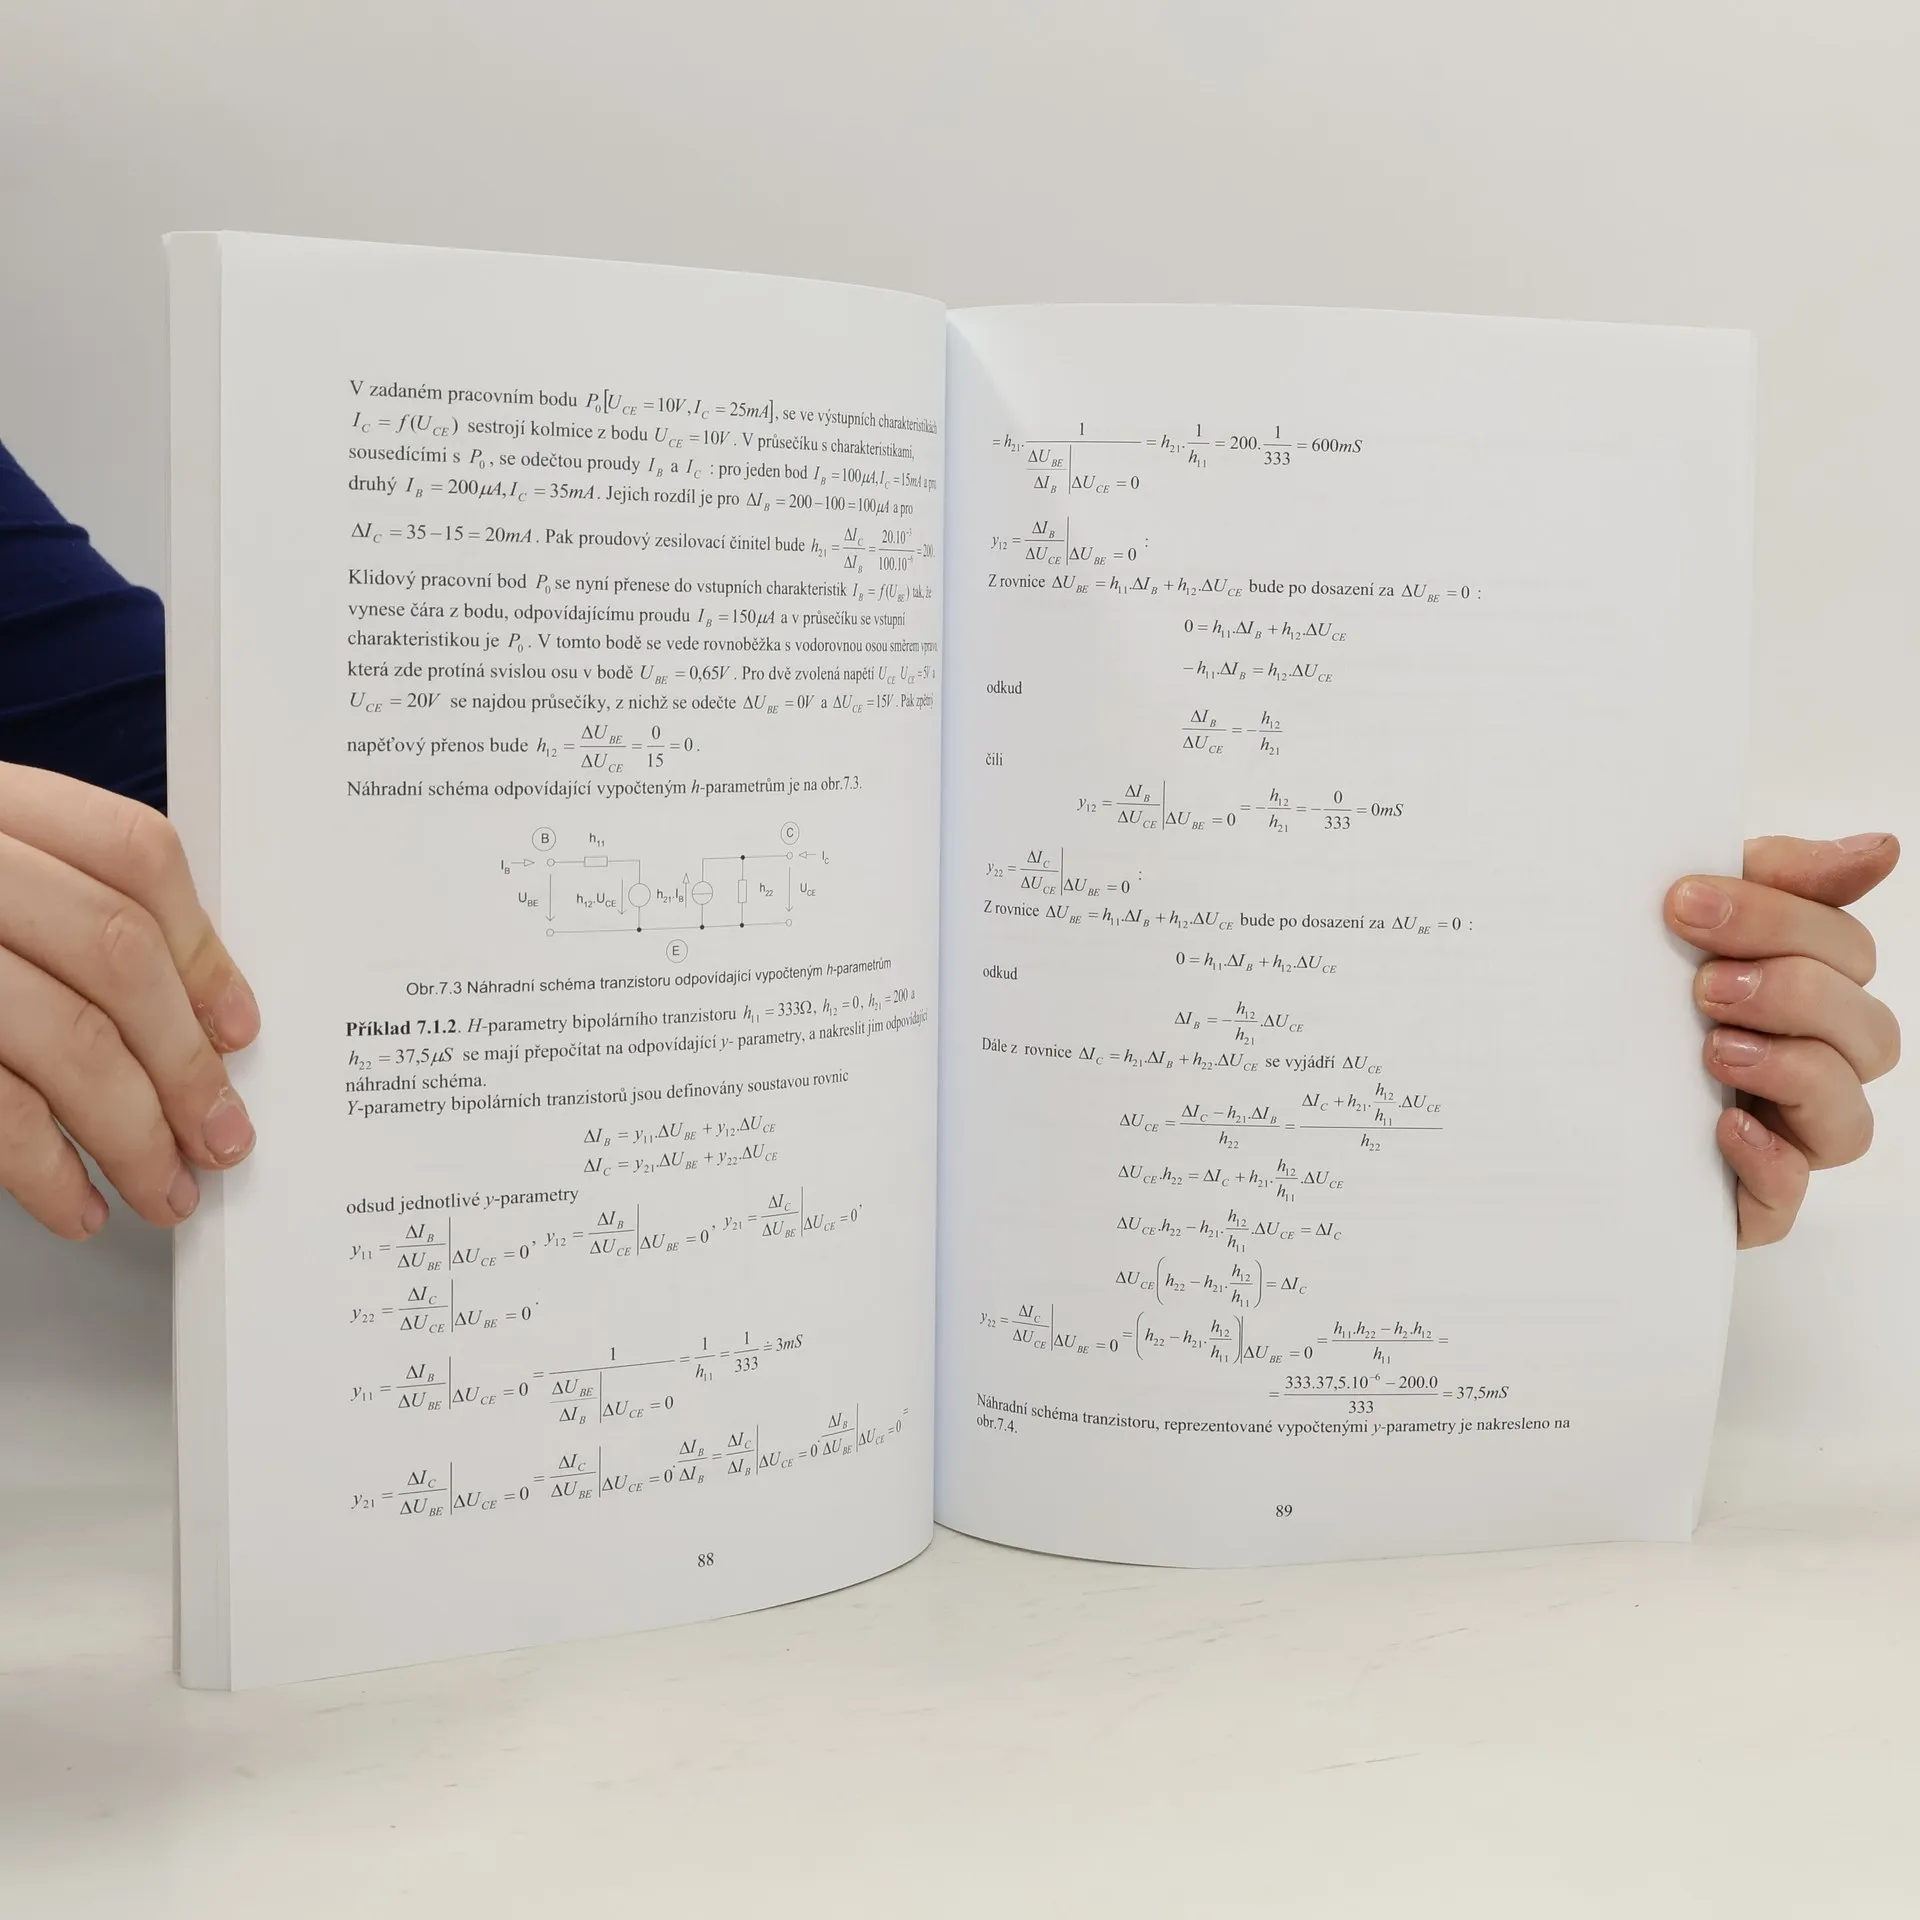 V zadaném pracovním bodu P₀[U_CE = 10V, I_C = 25mA], se ve výstupních charakteristikách
I_C = f(U_CE) sestrojí kolmice z bodu U_CE = 10V. V průsečíku s charakteristikami,
sousedícími s P₀, se odečtou proudy I_B a I_C : pro jeden bod I_B = 100μA, I_C = 15mA a pro
druhý I_B = 200μA, I_C = 35mA. Jejich rozdíl je pro ΔI_B = 200 – 100 = 100μA a pro
ΔI_C = 35 – 15 = 20mA. Pak proudový zesilovací činitel bude h₂₁ = ΔI_C / ΔI_B = 20.10⁻³ / 100.10⁻⁶ = 200.
Klidový pracovní bod P₀ se nyní přenese do vstupních charakteristik I_B = f(U_BE) tak, že
vynese čára z bodu, odpovídajícímu proudu I_B = 150μA a v průsečíku se vstupní
charakteristikou je P₀. V tomto bodě se vede rovnoběžka s vodorovnou osou směrem vpravo,
která zde protíná svislou osu v bodě U_BE = 0,65V. Pro dvě zvolená napětí U_CE U_CE = 5V a
U_CE = 20V se najdou průsečíky, z nichž se odečte ΔU_BE = 0V a ΔU_CE = 15V. Pak zpětný
napěťový přenos bude h₁₂ = ΔU_BE / ΔU_CE = 0 / 15 = 0.
Náhradní schéma odpovídající vypočteným h-parametrům je na obr.7.3.
B h₁₁ C
I_B I_C
U_BE h₁₂.U_CE h₂₁.I_B h₂₂ U_CE
E
Obr.7.3 Náhradní schéma tranzistoru odpovídající vypočteným h-parametrům
Příklad 7.1.2. H-parametry bipolárního tranzistoru h₁₁ = 333Ω, h₁₂ = 0, h₂₁ = 200 a
h₂₂ = 37,5μS se mají přepočítat na odpovídající y- parametry, a nakreslit jim odpovídající
náhradní schéma.
Y-parametry bipolárních tranzistorů jsou definovány soustavou rovnic
ΔI_B = y₁₁.ΔU_BE + y₁₂.ΔU_CE
ΔI_C = y₂₁.ΔU_BE + y₂₂.ΔU_CE
odsud jednotlivé y-parametry
y₁₁ = ΔI_B / ΔU_BE | ΔU_CE = 0, y₁₂ = ΔI_B / ΔU_CE | ΔU_BE = 0, y₂₁ = ΔI_C / ΔU_BE | ΔU_CE = 0,
y₂₂ = ΔI_C / ΔU_CE | ΔU_BE = 0.
y₁₁ = ΔI_B / ΔU_BE | ΔU_CE = 0 = 1 / (ΔU_BE / ΔI_B | ΔU_CE = 0) = 1 / h₁₁ = 1 / 333 ≐ 3mS
y₂₁ = ΔI_C / ΔU_BE | ΔU_CE = 0 = ΔI_C / ΔU_BE | ΔU_CE = 0 . ΔI_B / ΔI_B = ΔI_C / ΔI_B | ΔU_CE = 0 . ΔI_B / ΔU_BE | ΔU_CE = 0 =
88
= h₂₁. 1 / (ΔU_BE / ΔI_B | ΔU_CE = 0) = h₂₁. 1 / h₁₁ = 200. 1 / 333 = 600mS
y₁₂ = ΔI_B / ΔU_CE | ΔU_BE = 0 :
Z rovnice ΔU_BE = h₁₁.ΔI_B + h₁₂.ΔU_CE bude po dosazení za ΔU_BE = 0 :
0 = h₁₁.ΔI_B + h₁₂.ΔU_CE
– h₁₁.ΔI_B = h₁₂.ΔU_CE
odkud
ΔI_B / ΔU_CE = – h₁₂ / h₂₁
čili
y₁₂ = ΔI_B / ΔU_CE | ΔU_BE = 0 = – h₁₂ / h₂₁ = – 0 / 333 = 0mS
y₂₂ = ΔI_C / ΔU_CE | ΔU_BE = 0 :
Z rovnice ΔU_BE = h₁₁.ΔI_B + h₁₂.ΔU_CE bude po dosazení za ΔU_BE = 0 :
0 = h₁₁.ΔI_B + h₁₂.ΔU_CE
odkud
ΔI_B = – h₁₂ / h₂₁ .ΔU_CE
Dále z rovnice ΔI_C = h₂₁.ΔI_B + h₂₂.ΔU_CE se vyjádří ΔU_CE
ΔU_CE = (ΔI_C – h₂₁.ΔI_B) / h₂₂ = (ΔI_C + h₂₁. h₁₂ / h₁₁ .ΔU_CE) / h₂₂
ΔU_CE.h₂₂ = ΔI_C + h₂₁. h₁₂ / h₁₁ .ΔU_CE
ΔU_CE.h₂₂ – h₂₁. h₁₂ / h₁₁ .ΔU_CE = ΔI_C
ΔU_CE (h₂₂ – h₂₁. h₁₂ / h₁₁) = ΔI_C
y₂₂ = ΔI_C / ΔU_CE | ΔU_BE = 0 = (h₂₂ – h₂₁. h₁₂ / h₁₁) | ΔU_BE = 0 = (h₁₁.h₂₂ – h₂.h₁₂) / h₁₁ =
= (333.37,5.10⁻⁶ – 200.0) / 333 = 37,5mS
Náhradní schéma tranzistoru, reprezentované vypočtenými y-parametry je nakresleno na
obr.7.4.
89